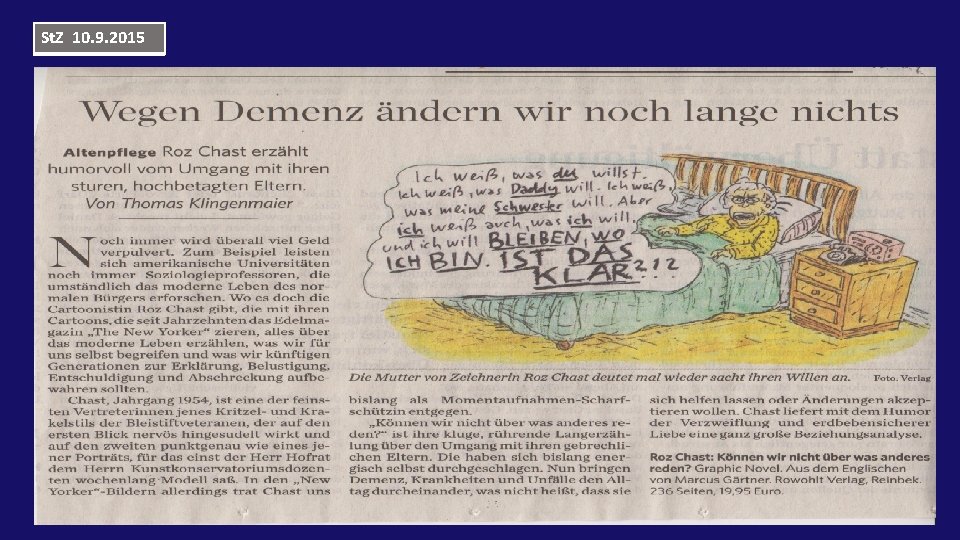 StZ 10.9.2015
Wegen Demenz ändern wir noch lange nichts
Altenpflege Roz Chast erzählt
humorvoll vom Umgang mit ihren
sturen, hochbetagten Eltern.
Von Thomas Klingenmaier
Noch immer wird überall viel Geld
verpulvert. Zum Beispiel leisten
sich amerikanische Universitäten
noch immer Soziologieprofessoren, die
umständlich das moderne Leben des nor-
malen Bürgers erforschen. Wo es doch die
Cartoonistin Roz Chast gibt, die mit ihren
Cartoons, die seit Jahrzehnten das Edelma-
gazin „The New Yorker“ zieren, alles über
das moderne Leben erzählen, was wir für
uns selbst begreifen und was wir künftigen
Generationen zur Erklärung, Belustigung,
Entschuldigung und Abschreckung aufbe-
wahren sollten.
Chast, Jahrgang 1954, ist eine der feins-
ten Vertreterinnen jenes Kritzel- und Kra-
kelstils der Bleistiftveteranen, der auf den
ersten Blick nervös hingesudelt wirkt und
auf den zweiten punktgenau wie eines je-
ner Porträts, für das einst der Herr Hofrat
dem Herrn Kunstkonservatoriumsdozen-
ten wochenlang Modell saß. In den „New
Yorker“-Bildern allerdings trat Chast uns
Ich weiß, was du willst.
Ich weiß, was Daddy will. Ich weiß,
was meine Schwester will. Aber
ich weiß auch, was ich will.
und ich will BLEIBEN, WO
ICH BIN. IST DAS
KLAR?!?
Die Mutter von Zeichnerin Roz Chast deutet mal wieder sacht ihren Willen an.
Foto. Verlag
bislang als Momentaufnahmen-Scharf-
schützin entgegen.
„Können wir nicht über was anderes re-
den?“ ist ihre kluge, rührende Langerzäh-
lung über den Umgang mit ihren gebrechli-
chen Eltern. Die haben sich bislang ener-
gisch selbst durchgeschlagen. Nun bringen
Demenz, Krankheiten und Unfälle den All-
tag durcheinander, was nicht heißt, dass sie
sich helfen lassen oder Änderungen akzep-
tieren wollen. Chast liefert mit dem Humor
der Verzweiflung und erdbebensicherer
Liebe eine ganz große Beziehungsanalyse.
Roz Chast: Können wir nicht über was anderes
reden? Graphic Novel. Aus dem Englischen
von Marcus Gärtner. Rowohlt Verlag, Reinbek.
236 Seiten, 19,95 Euro.